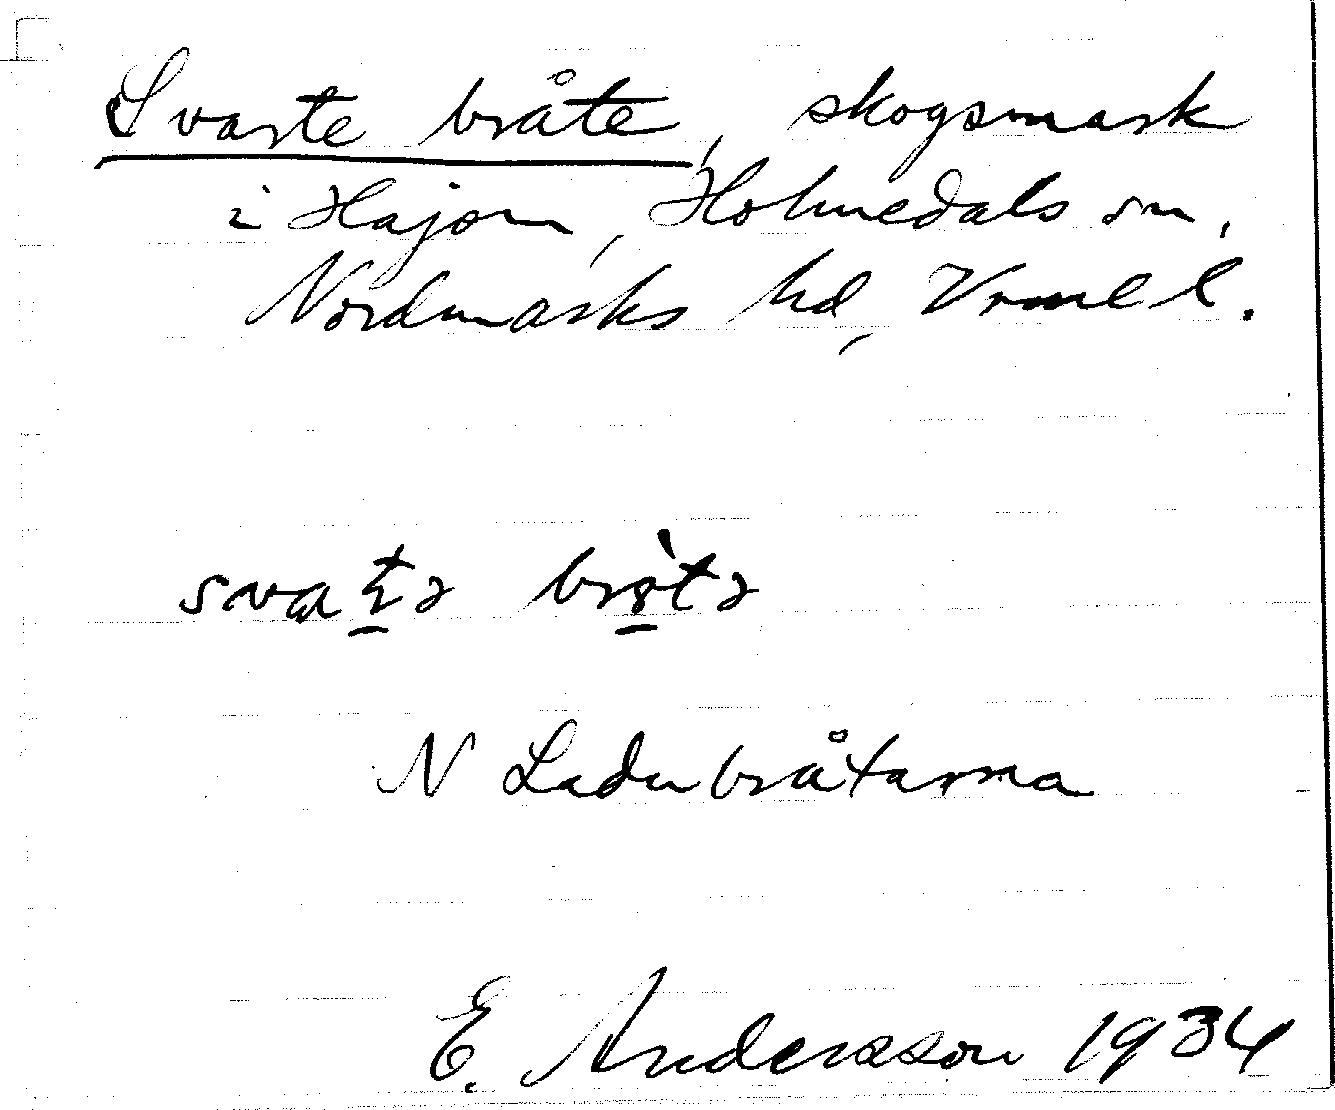 Svarte bråte, skogsmark
i Hajom, Holmedals sn,
Nordmarks hd, Vrml l.
N Ladubråtarna
E. Andersson 1934